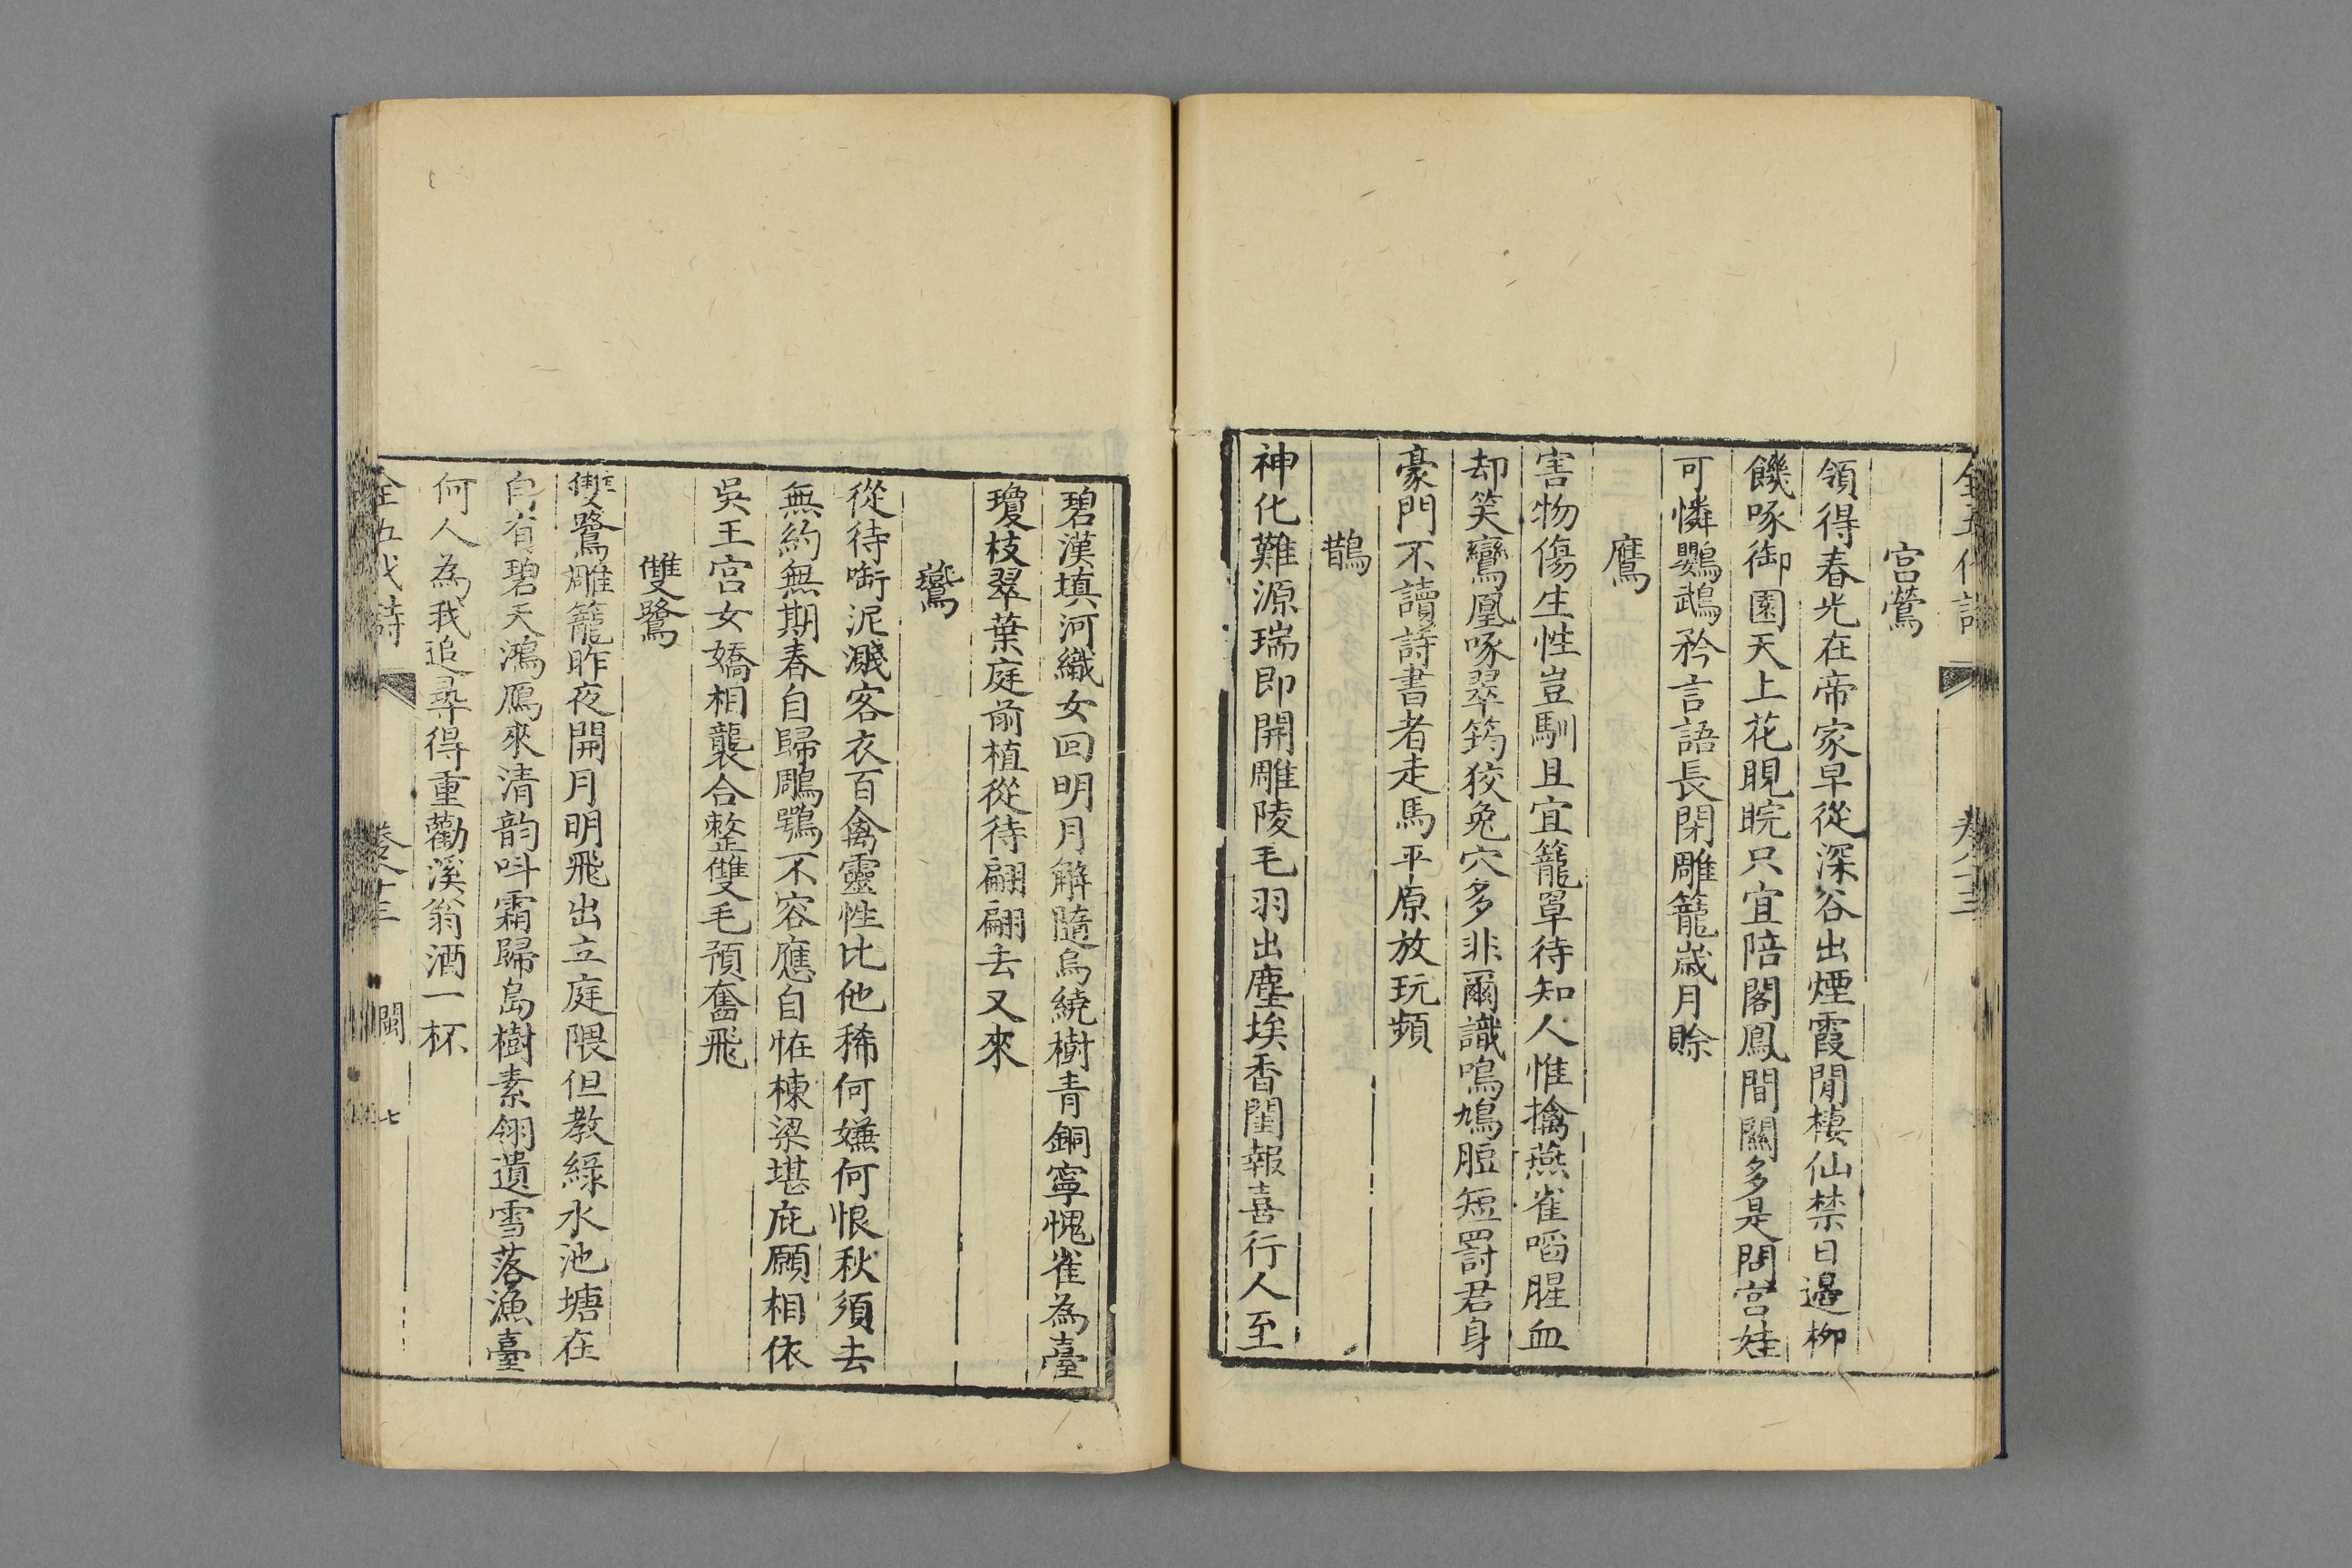 全五代詩 卷八十三
宮鶯
領得春光在帝家早從深谷出煙霞閒棲仙禁日邊柳
饑啄御園天上花睍睆只宜陪閣鳳間關多是問宮娃
可憐鸚鵡矜言語長閉雕籠歲月賒
鷹
害物傷生性豈馴且宜籠罩待知人惟擒燕雀啗腥血
却笑鸞凰啄翠筠狡兔穴多非爾識鳴鳩脰短罰君身
豪門不讀詩書者走馬平原放玩頻
鵲
神化難源瑞即開雕陵毛羽出塵埃香閨報喜行人至
碧漢填河織女回明月解隨烏繞樹青銅寧愧雀為臺
瓊枝翠葉庭前植從待翩翩去又來
鷰
從待銜泥濺客衣百禽靈性比他稀何嫌何恨秋須去
無約無期春自歸鵰鶚不容應自怪棟梁堪庇願相依
吳王宮女嬌相襲合整雙毛預奮飛
雙鷺
雙鷺雕籠昨夜開月明飛出立庭隈但教綠水池塘在
自有碧天鴻鴈來清韵呌霜歸島樹素翎遺雪落漁臺
何人為我追尋得重勸溪翁酒一杯
全五代詩 卷八十三 閩 七